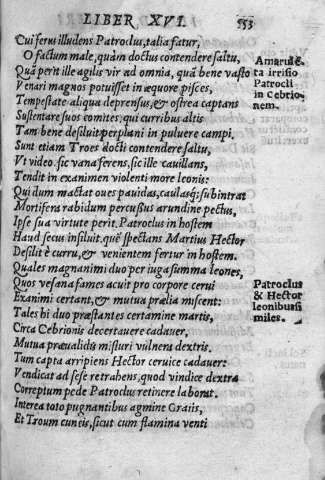 LIBER XVI. 353
Cui ferus illudens Patroclus, talia fatur,
O factum male, quàm doctus contendere saltu,
Quâ perit ille agilis vir ad omnia, quâ bene vasto
Venari magnos potuisset in æquore pisces,
Tempestate aliqua deprensus, & ostrea captans
Sustentare suos comites, qui curribus altis
Tam bene desiluit per plani in puluere campi.
Sunt etiam Troes docti contendere saltu,
Vt video. sic vana ferens, sic ille cauillans,
Tendit in exanimen violenti more leonis:
Qui dum mactat oues pauidas, caulasq; subintrat
Mortifera rabidum percussus arundine pectus,
Ipse sua virtute perit. Patroclus in hostem
Haud secus insiluit, quē spectans Martius Hector
Desilit è curru, & venientem fertur in hostem.
Quales magnanimi duo per iuga summa leones,
Quos vesana fames acuit pro corpore cerui
Exanimi certant, & mutua prælia miscent:
Tales hi duo præstantes certamine martis,
Circa Cebrionis decertauere cadauer,
Mutua præualidis misturi vulnera dextris.
Tum capta arripiens Hector ceruice cadauer:
Vendicat ad sese retrahens, quod vindice dextra
Correptum pede Patroclus retinere laborat.
Interea toto pugnantibus agmine Graiis,
Et Troum cuneis, sicut cum flamina venti
Amarulē
ta irrisio
Patrocli
in Cebrio
nem.
Patroclus
& Hector
leonibus si
miles.